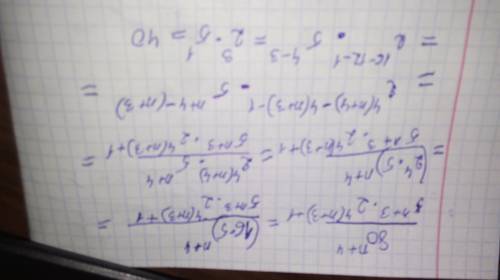 80^{n+4} / 5^{n+3} · 2^{4(n+3)+1} = (16·5)^{n+4} / 5^{n+3} · 2^{4(n+3)+1} =
= (2^4·5)^{n+4} / 5^{n+3} · 2^{4(n+3)+1} = 2^{4(n+4)} · 5^{n+4} / 5^{n+3} · 2^{4(n+3)+1} =
= 2^{4(n+4)-4(n+3)-1} · 5^{n+4-(n+3)} =
= 2^{16-12-1} · 5^{4-3} = 2^3 · 5^1 = 40